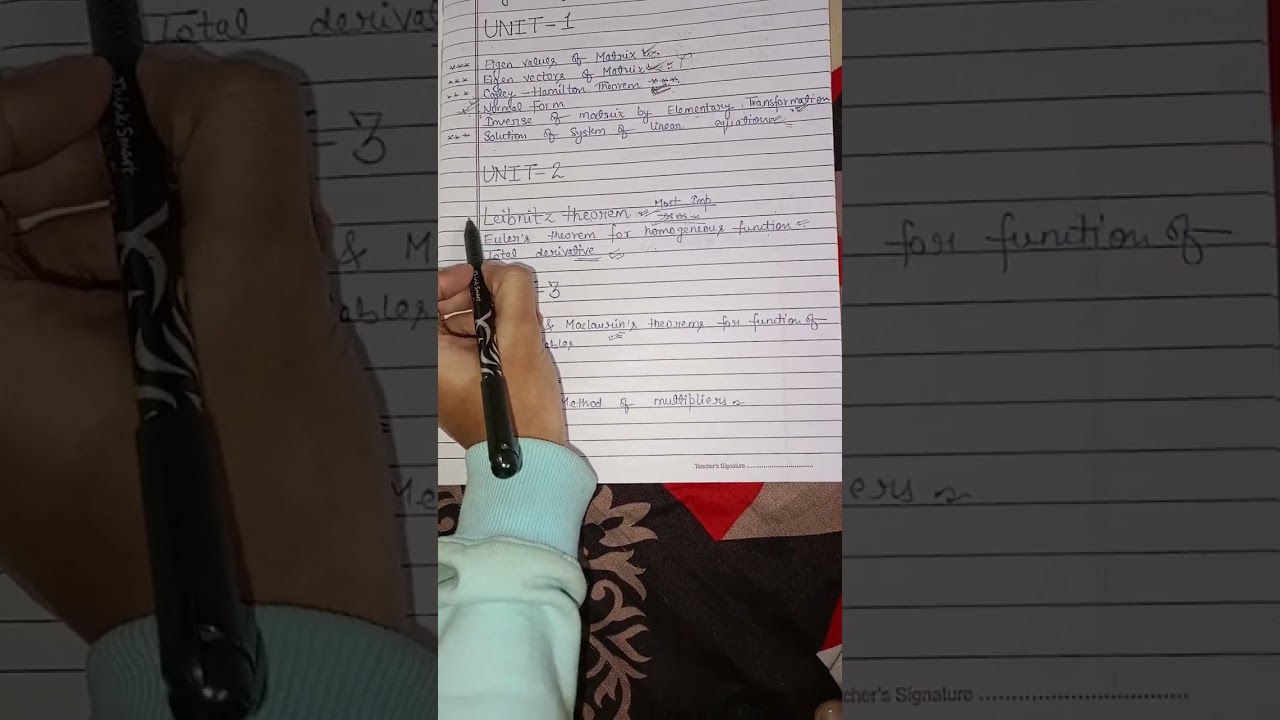 UNIT-1
*** Eigen values of Matrix
*** Eigen vectors of Matrix
*** Caley-Hamilton Theorem ***
Normal Form
Inverse of matrix by Elementary Transformation
*** Solution of System of linear equation
UNIT-2
Leibnitz theorem Most Imp
Euler's theorem for homogeneous function
Total derivative
-3
& Maclaurin's theorems for function of
ables
Method of multipliers
Teacher's Signature
Think Smart